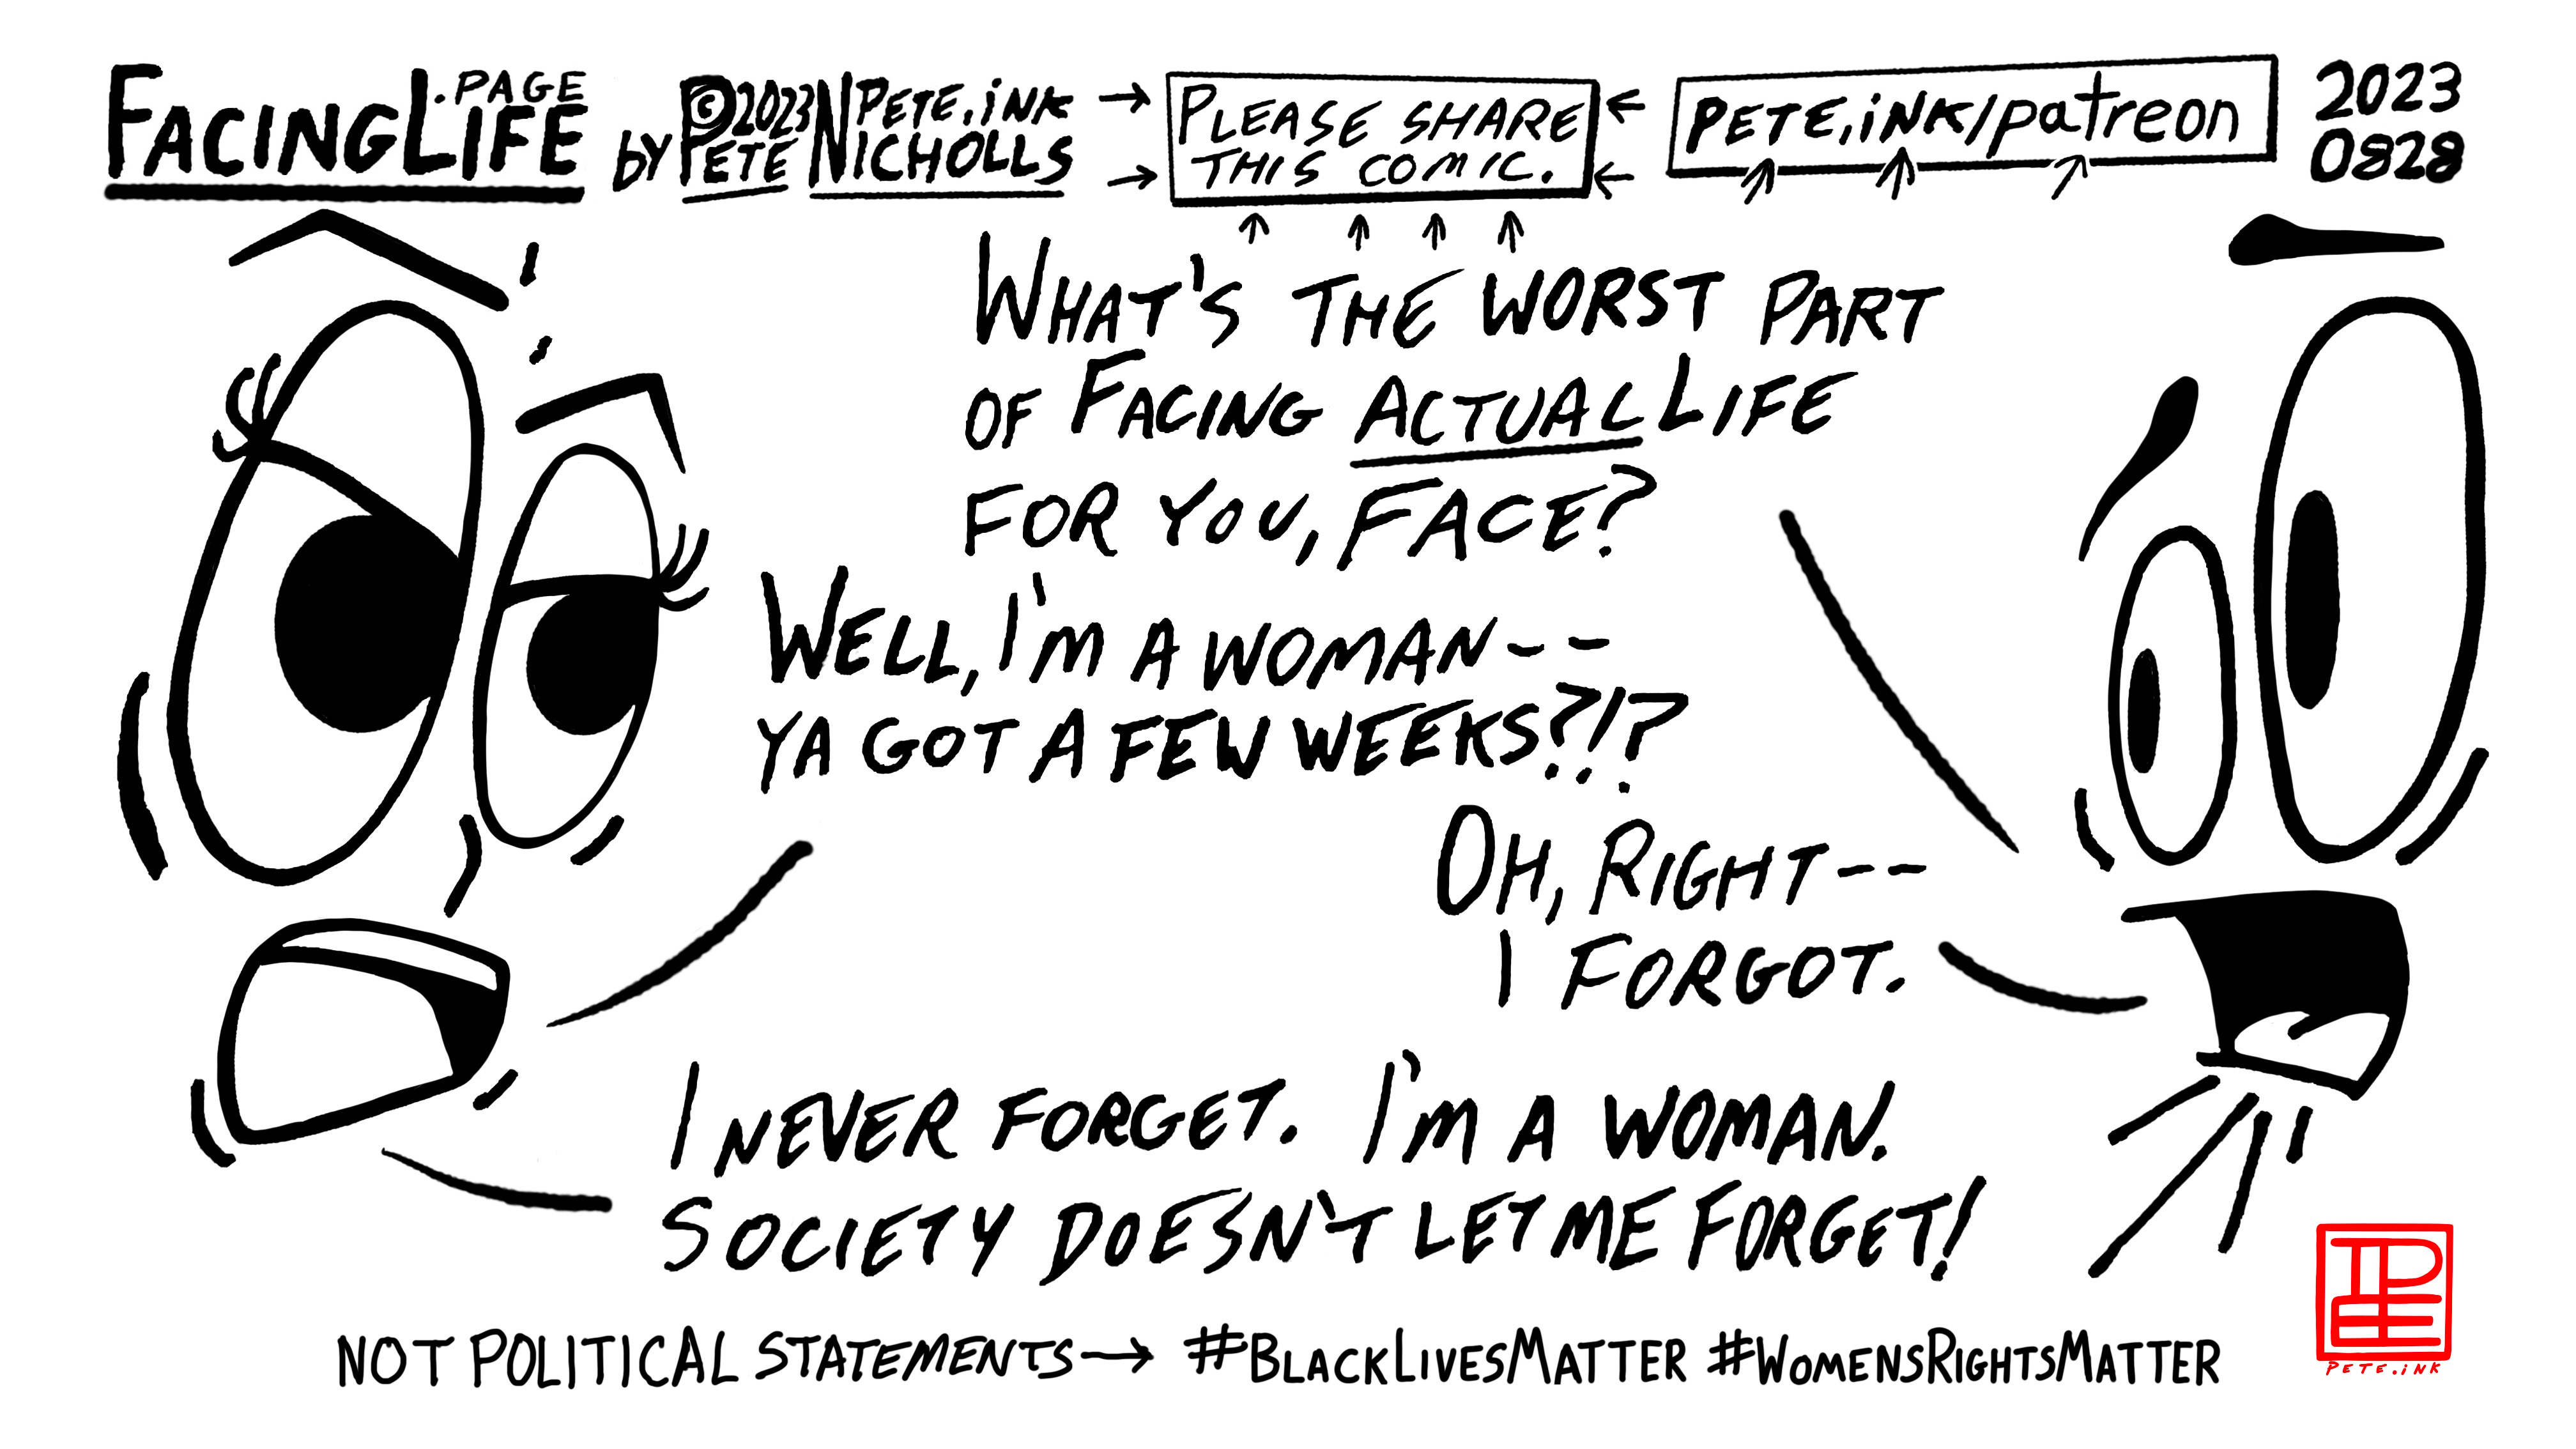 FACINGLIFE.PAGE
by PETE NICHOLLS
©2023 PETE.iNK
PLEASE SHARE
THIS COMIC.
PETE.iNK/patreon
2023
0828
WHAT'S THE WORST PART
OF FACING ACTUAL LIFE
FOR YOU, FACE?
WELL, I'M A WOMAN--
YA GOT A FEW WEEKS?!?
OH, RIGHT--
I FORGOT.
I NEVER FORGET. I'M A WOMAN.
SOCIETY DOESN'T LET ME FORGET!
NOT POLITICAL STATEMENTS→ #BLACKLIVESMATTER #WOMENSRIGHTSMATTER
PETE
PETE.iNK